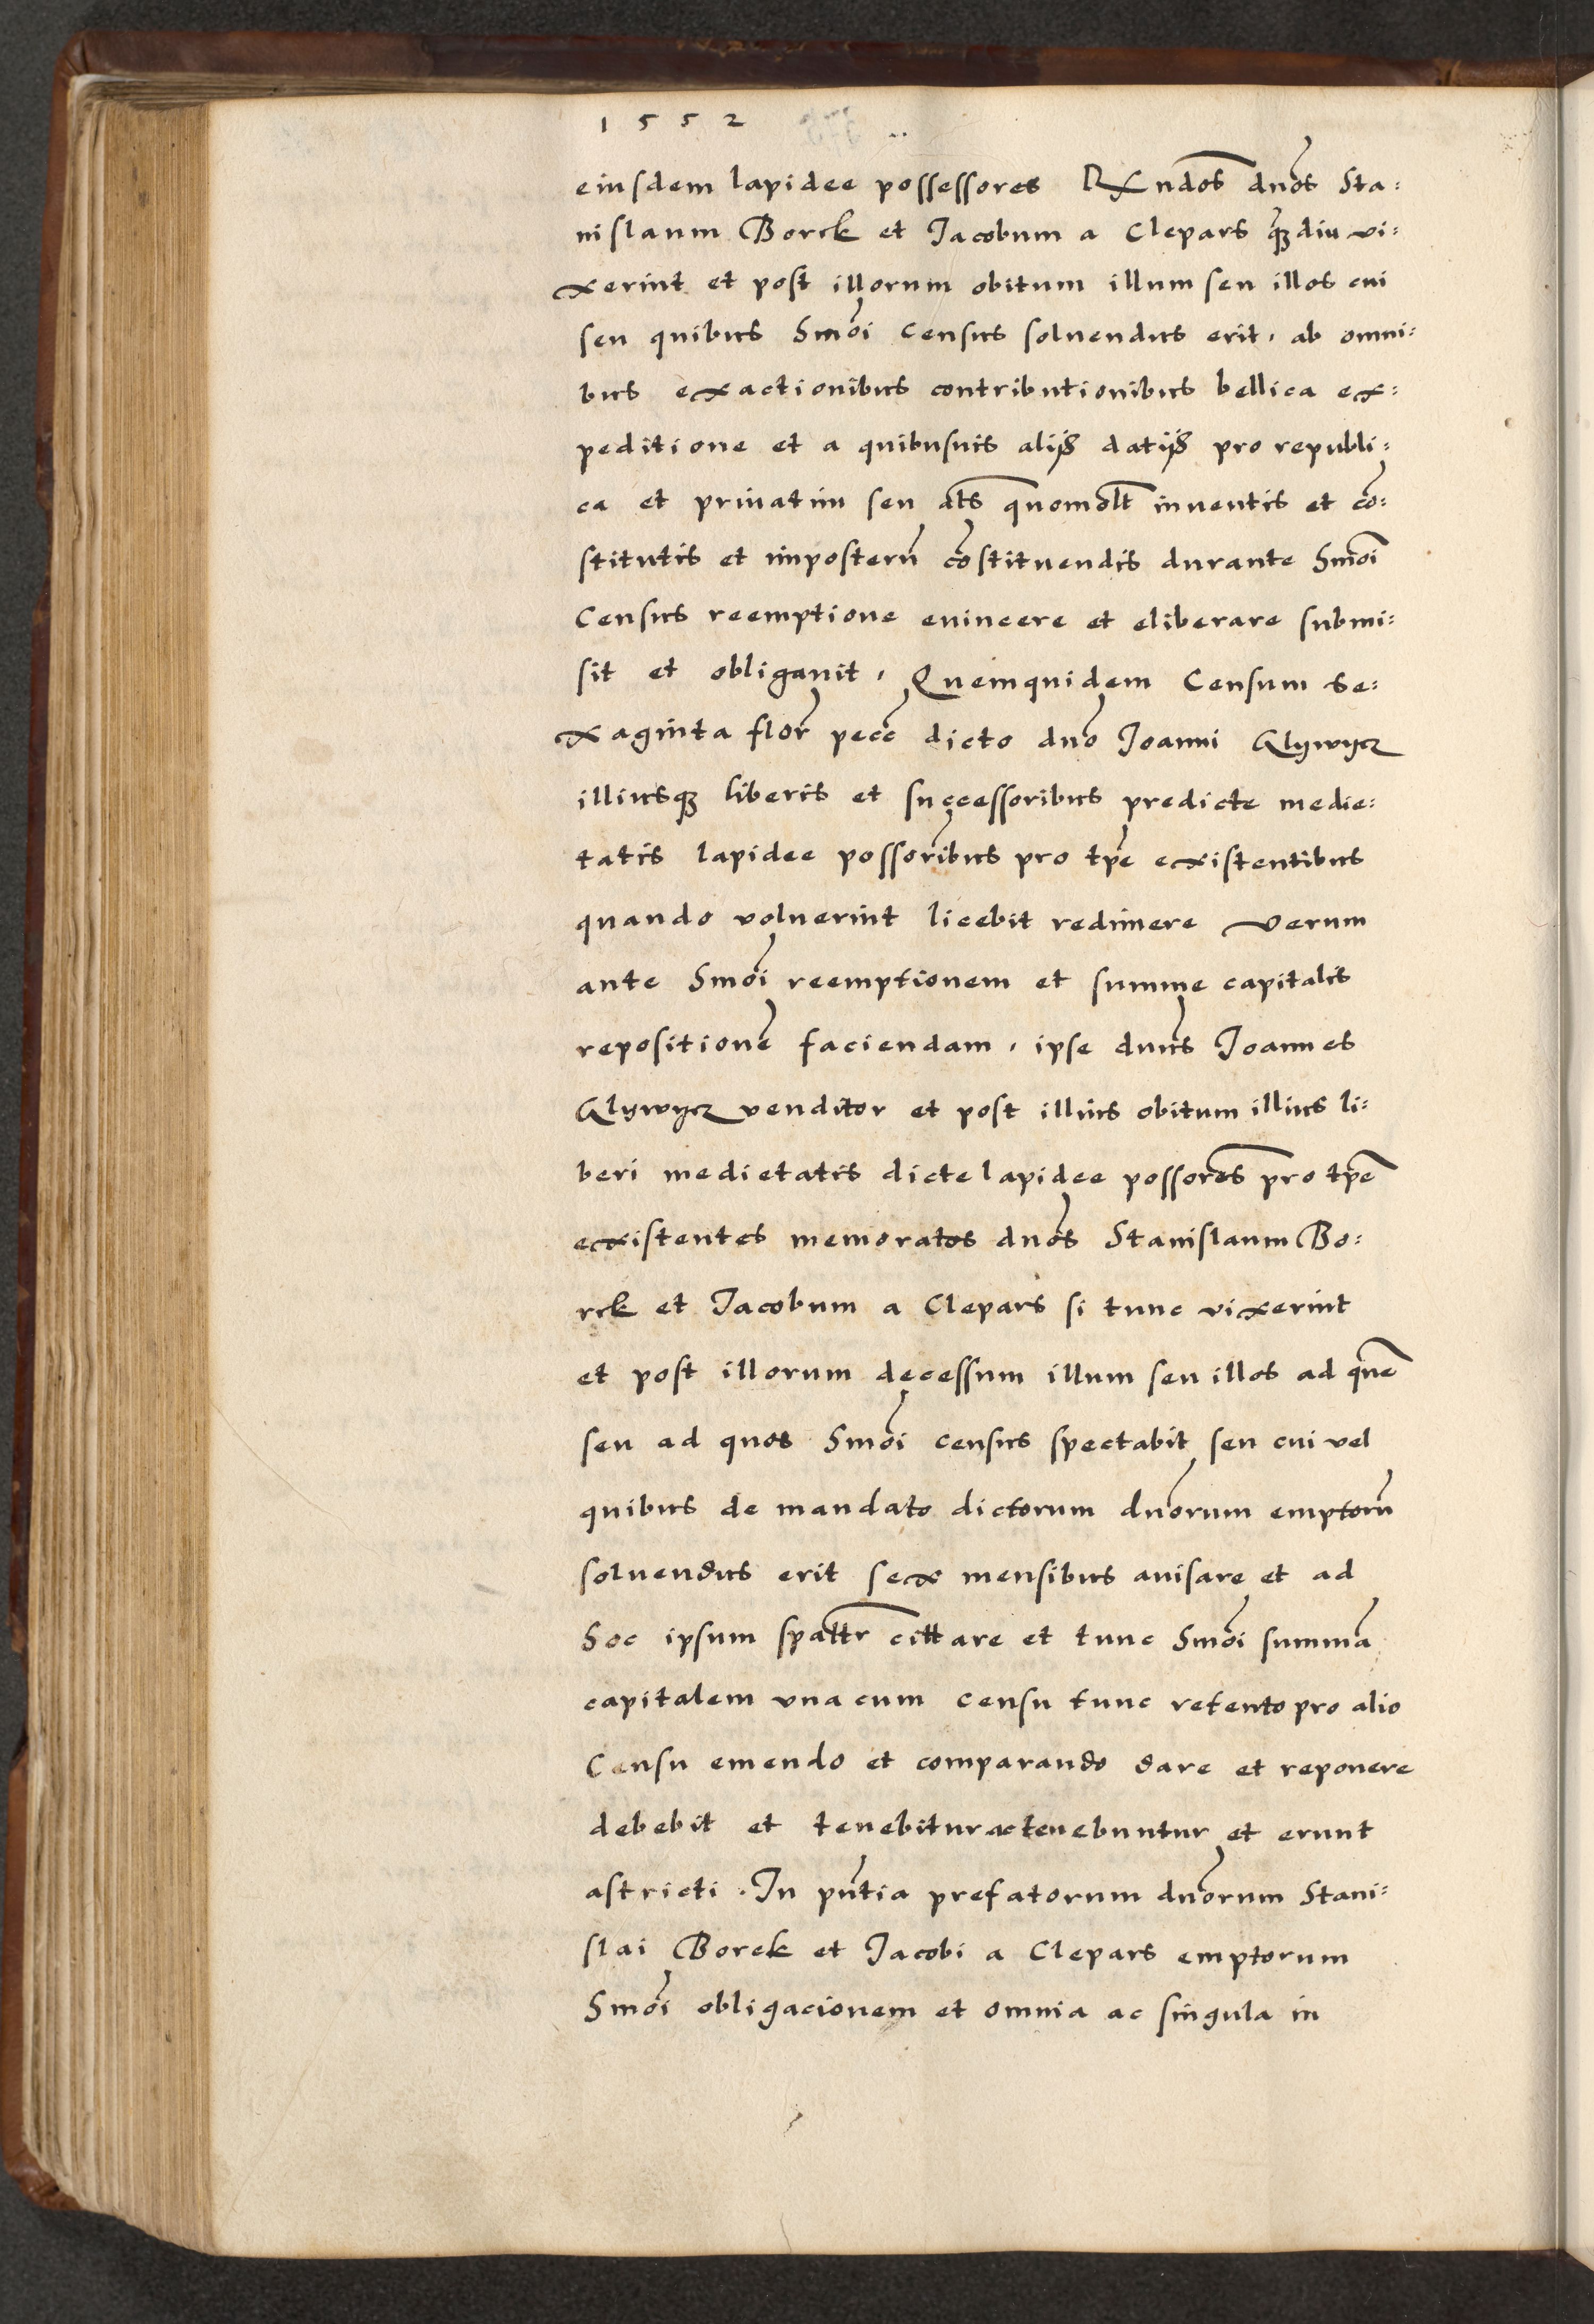 1552
eiusdem lapidee possessores Rx̃ndos dños Sta:
nislaum Borck et Jacobum a Clepars q̃ꝫdiu vi:
xerint et post illorum obitum illum seu illos cui
seu quibus hmõi Census soluendus erit, ab omni:
bus exactionibus contributionibus bellica ex:
peditione et a quibusuis alijs datijs pro republi:
ca et priuatim seu als̃ quomolt̃ inuentis et cõ:
stitutis et imposterũ cõstituendis durante hmõi
Census reemptione euincere et eliberare submi:
sit et obligauit, Quemquidem Censum se:
xaginta flor̃ pecc̃ dicto dño Joanni Glywycz
illiusqꝫ liberis et successoribus predicte medie:
tatis lapidee possoribus pro tp̃e existentibus
quando voluerint licebit redimere Verum
ante hmõi reemptionem et summe capitalis
repositionẽ faciendam, ipse dñus Joannes
Glywycz venditor et post illius obitum illius li:
beri medietatis dicte lapidee possores̃ pro tp̃e
existentes memoratos dños Stanislaum Bo:
rck et Jacobum a Clepars si tunc vixerint
et post illorum decessum illum seu illos ad quẽ
seu ad quos hmõi census spectabit seu cui vel
quibus de mandato dictorum dñorum emptorũ
soluendus erit sex mensibus auisare et ad
hoc ipsum spaltr̃ cittare et tunc hmõi summã
capitalem vna cum censu tunc retento pro alio
Censu emendo et comparando dare et reponere
debebit et tenebitur ac tenebuntur et erunt
astricti. In pñtia prefatorum dñorum Stani:
slai Borck et Jacobi a Clepars emptorum
hmõi obligacionem et omnia ac singula in